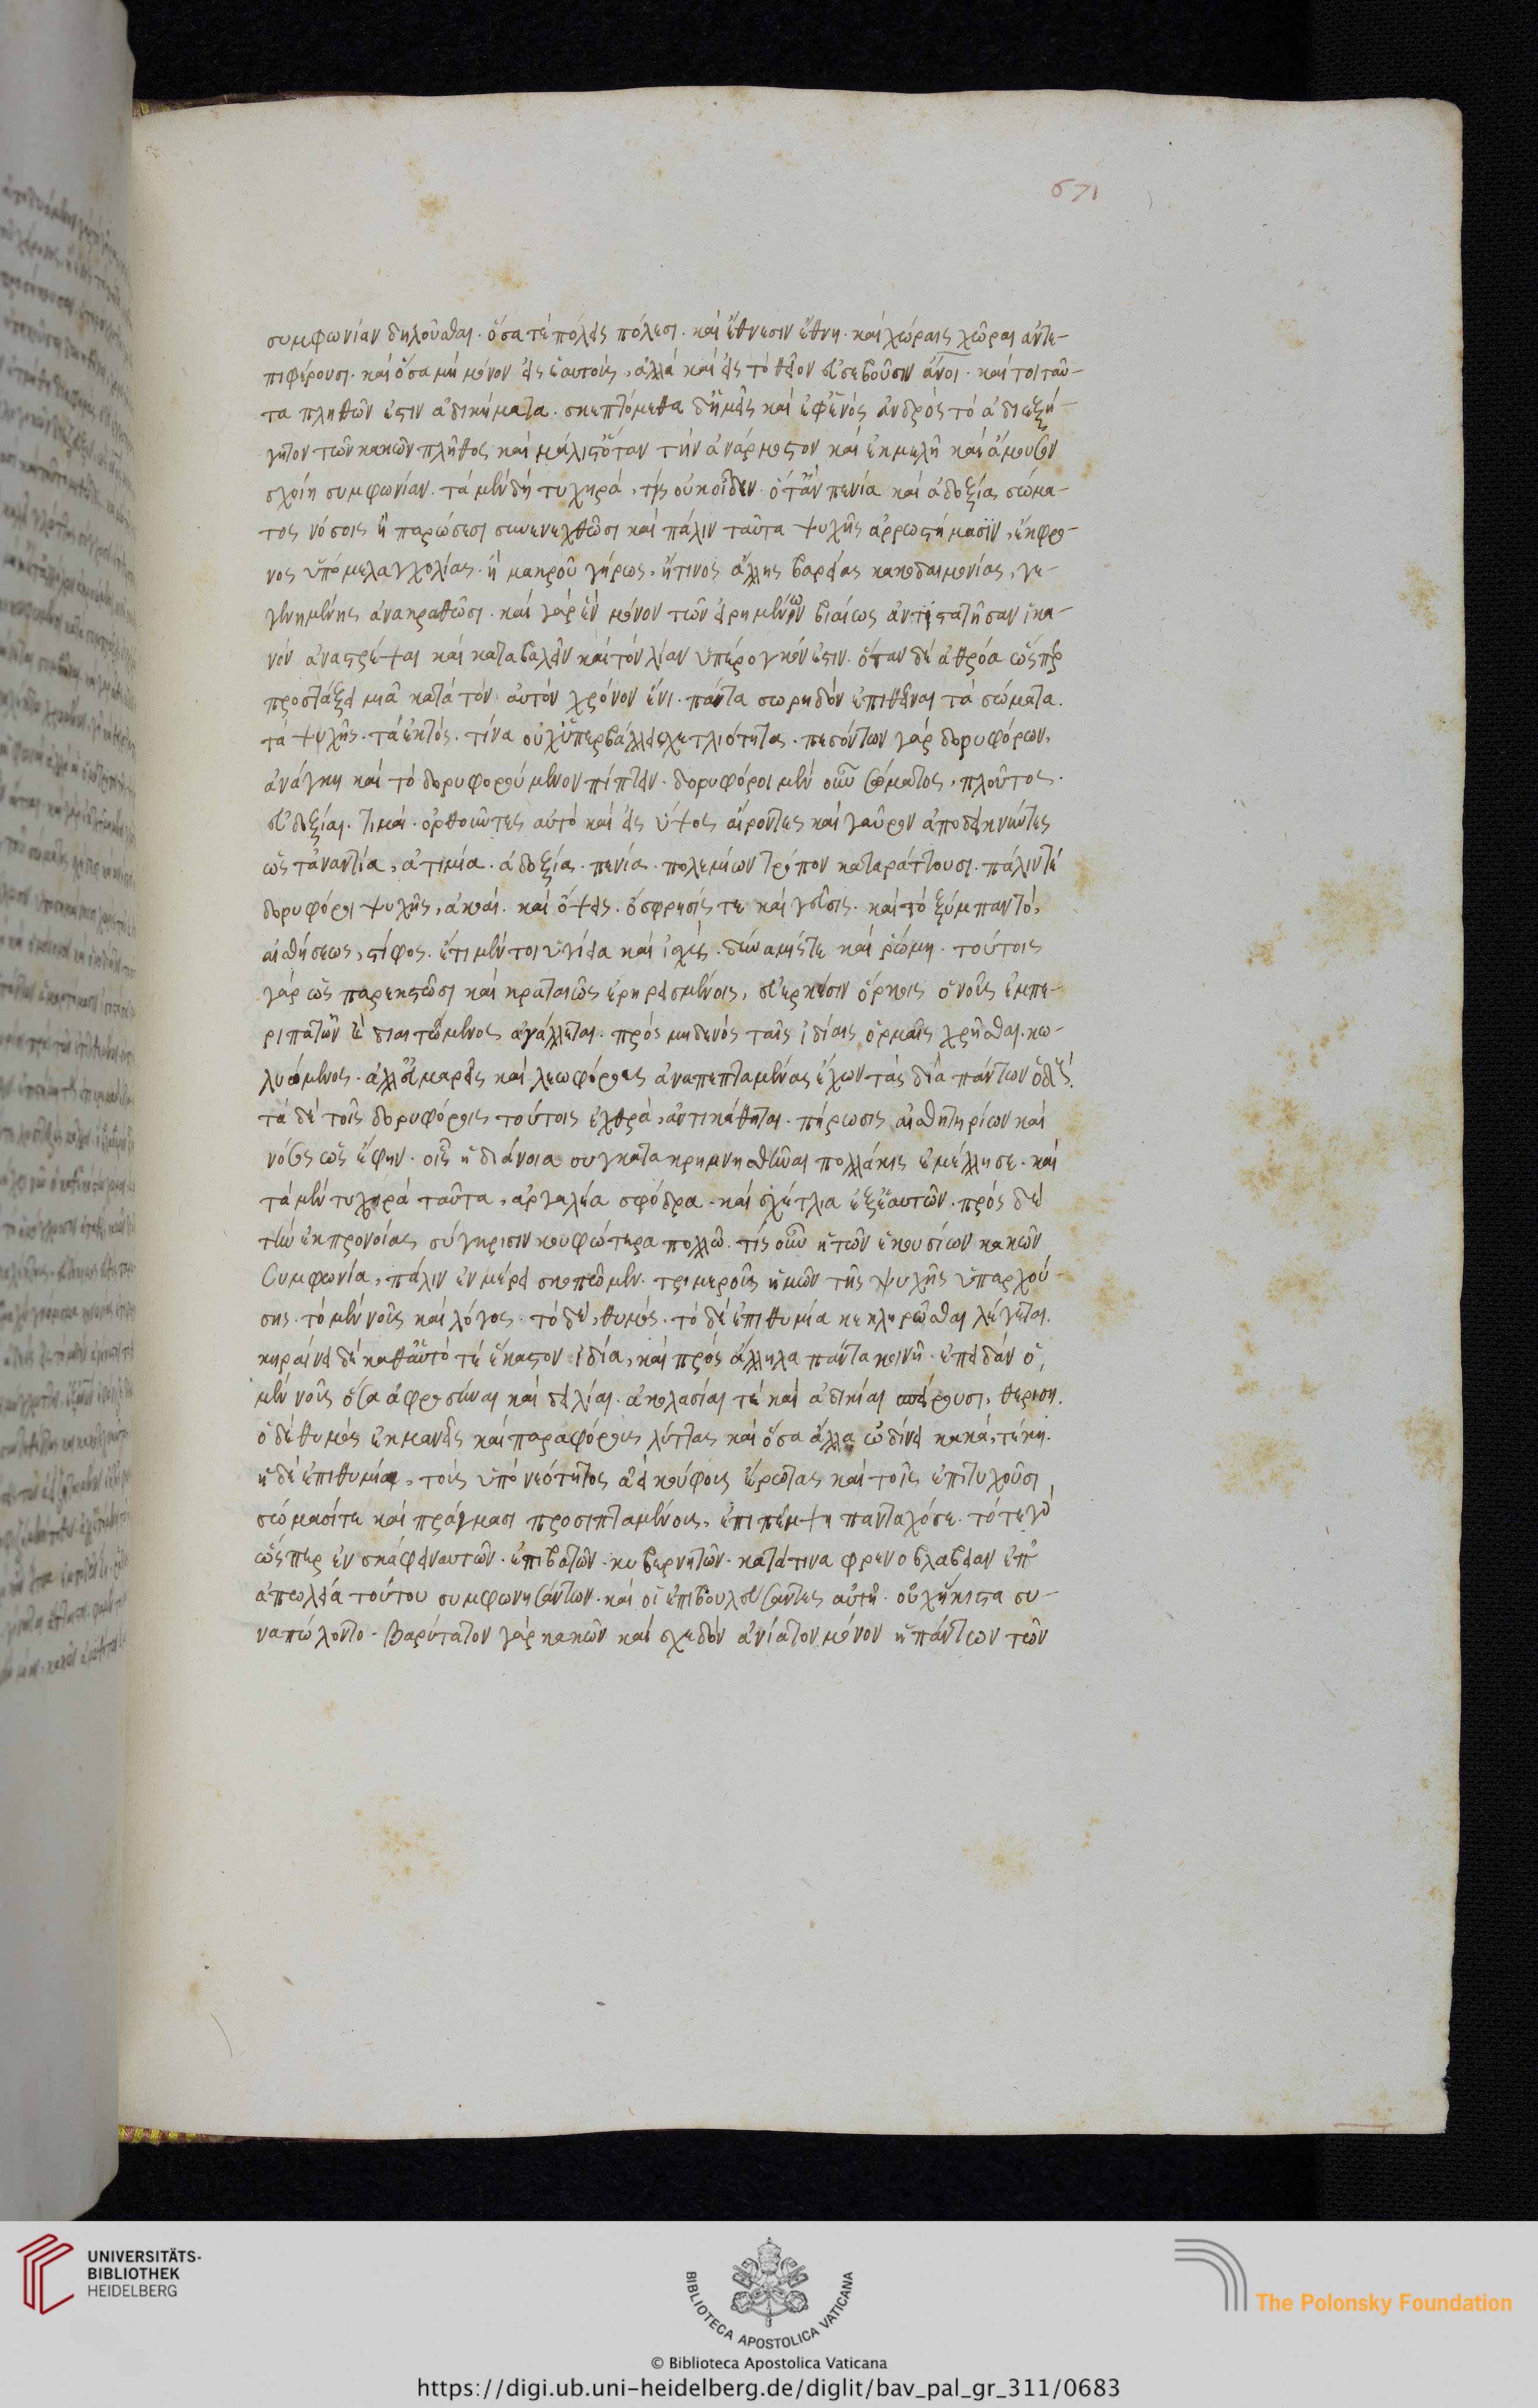 671
συμφωνίαν δηλοῦσθαι. ὅσα τὲ πόλεις πόλεσι. καὶ ἔθνεσιν ἔθνη. καὶ χώραις χῶραι ἀντε-
πιφέρουσι. καὶ ὅσα μὴ μόνον εἰς ἑαυτοὺς, ἀλλὰ καὶ εἰς τὸ θεῖον ἀσεβοῦσιν ἄνοι. καί τοι ταῦ-
τα πληθῶν ἐστιν ἀδικήματα. σκεπτόμεθα δ' ἡμεῖς καὶ ἐφ' ἑνὸς ἀνδρὸς τὸ ἀδιεξή-
γητον τῶν κακῶν πλῆθος καὶ μάλισθ' ὅταν τὴν ἀνάρμοστον καὶ ἐκμελῆ καὶ ἄμουσον
σχοίη συμφωνίαν. τὰ μὲν δὴ τυχηρὰ, τίς οὐκ οἶδεν. ὅτ' ἂν πενία καὶ ἀδοξία σώμα-
τος νόσοις ἢ παρώσεσι συνενεχθῶσι καὶ πάλιν ταῦτα ψυχῆς ἀρρωστήμασιν, ἔκφρο-
νος ὑπὸ μελαγχολίας. ἢ μακροῦ γήρως, ἤ τινος ἄλλης βαρείας κακοδαιμονίας, γε-
γενημένης ἀνακραθῶσι. καὶ γὰρ ἓν μόνον τῶν εἰρημένων βιαίως ἀντιστατῆσαν ἱκα-
νὸν ἀναστρέψαι καὶ καταβαλεῖν καὶ τὸν λίαν ὑπέρογκόν ἐστιν. ὅταν δὲ ἀθρόα ὥσπερ
προστάξει μιᾷ κατὰ τὸν αὐτὸν χρόνον ἑνὶ. πάντα σωρηδὸν ἐπιθῆναι τὰ σώματα.
τὰ ψυχῆς. τὰ ἐκτὸς. τίνα οὐχ ὑπερβάλλει σχετλιότητα. πεσόντων γὰρ δορυφόρων,
ἀνάγκη καὶ τὸ δορυφορούμενον πίπτειν. δορυφόροι μὲν οὖν σώματος, πλοῦτος.
εὐδοξίαι. τιμαὶ. ὀρθοῦντες αὐτὸ καὶ εἰς ὕψος αἴροντες καὶ γαῦρον ἀποδεικνύντες
ὡς τἀναντία, ἀτιμία. ἀδοξία. πενία. πολεμίων τρόπον καταράττουσι. πάλιν τὲ
δορυφόροι ψυχῆς, ἀκοαὶ. καὶ ὄψεις. ὄσφρησίς τε καὶ γεῦσις. καὶ τὸ ξύμπαν τὸ,
αἰσθήσεως, στίφος. ἔτι μέν τοι ὑγίεια καὶ ἰσχὺς. δύναμίς τε καὶ ῥώμη. τούτοις
γὰρ ὡς παρεκστῶσι καὶ κραταιῶς ἐρηρεισμένοις, εὐερκέσιν ὅρκοις ὁ νοῦς ἐμπε-
ριπατῶν ἐν διαιτώμενος ἀγάλλεται. πρὸς μηδενὸς ταῖς ἰδίαις ὁρμαῖς χρῆσθαι. κω-
λυόμενος. ἀλλ' εὐμαρεῖς καὶ λεωφόρους ἀναπεπταμένας ἔχων τὰς διὰ πάντων ὁδοὺς.
τὰ δὲ τοῖς δορυφόροις τούτοις ἐχθρὰ, ἀντικάθηται. πήρωσις αἰσθητηρίων καὶ
νόσος ὡς ἔφην. οἷς ἡ διάνοια συγκατακρημνησθῆναι πολλάκις ἐμέλλησε. καὶ
τὰ μὲν τυχηρὰ ταῦτα, ἀργαλέα σφόδρα. καὶ σχέτλια ἐξ ἑαυτῶν. πρὸς δὲ
τὴν ἐκ προνοίας σύγκρισιν κουφότερα πολλῷ. τίς οὖν ἡ τῶν ἑκουσίων κακῶν
συμφωνία, πάλιν ἐν μέρει σκοπῶμεν. τριμεροῦς ἡμῶν τῆς ψυχῆς ὑπαρχού-
σης. τὸ μὲν νοῦς καὶ λόγος. τὸ δὲ, θυμὸς. τὸ δὲ ἐπιθυμία κεκληρῶσθαι λέγεται.
κηραίνει δὲ καθ' αὑτό τε ἕκαστον ἰδίᾳ, καὶ πρὸς ἄλληλα πάντα κοινῇ. ἐπειδὰν ὁ,
μὲν νοῦς ὅσα ἀφροσύναι καὶ δειλίαι. ἀκολασίαι τὲ καὶ ἀδικίαι σπείρουσι, θερίση.
ὁ δὲ θυμὸς ἐκμανεῖς καὶ παραφόρους λύττας καὶ ὅσα ἄλλα ὠδίνει κακὰ, τέκη.
ἡ δὲ ἐπιθυμία, τοὺς ὑπὸ νεότητος ἀεὶ κούφους ἔρωτας καὶ τοῖς ἐπιτυχοῦσι
σώμασί τε καὶ πράγμασι προσιπταμένους, ἐπιπέμψη πανταχόσε. τότε γὰρ
ὥσπερ ἐν σκάφει ναυτῶν. ἐπιβατῶν. κυβερνητῶν. κατά τινα φρενοβλάβειαν ἐπ'
ἀπωλείᾳ τούτου συμφωνησάντων. καὶ οἱ ἐπιβουλεύσαντες αὐτῆ. οὐχ ἥκιστα συ-
ναπώλοντο. βαρύτατον γὰρ κακῶν καὶ σχεδὸν ἀνίατον μόνον ἡ πάντων τῶν
UNIVERSITÄTS-
BIBLIOTHEK
HEIDELBERG
BIBLIOTECA APOSTOLICA VATICANA
The Polonsky Foundation
© Biblioteca Apostolica Vaticana
https://digi.ub.uni-heidelberg.de/diglit/bav_pal_gr_311/0683